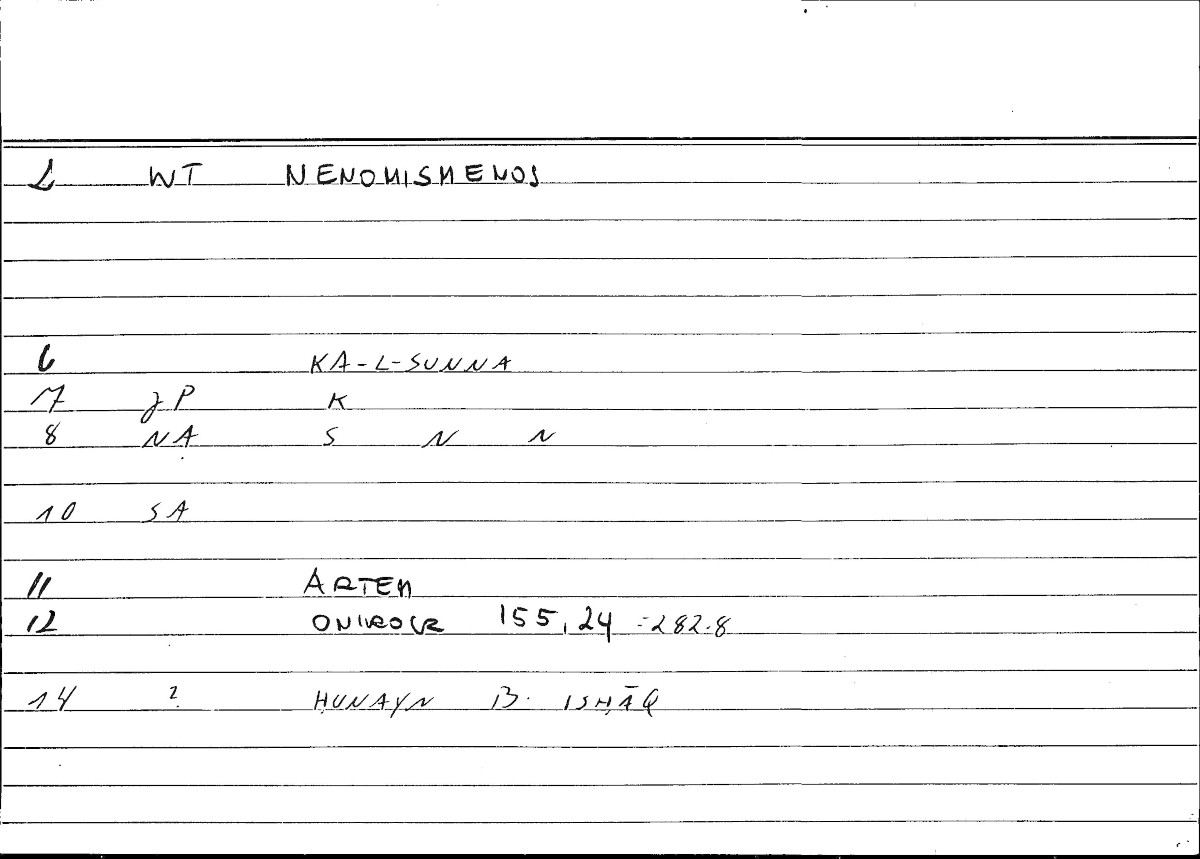 1 WT NENOMISMENOS
6 KA-L-SUNNA
7 JP K
8 NA S N N
10 SA
11 ARTEM
12 ONIROCR 155,24 =282.8
14 ? ḤUNAYN B. ISḤĀQ